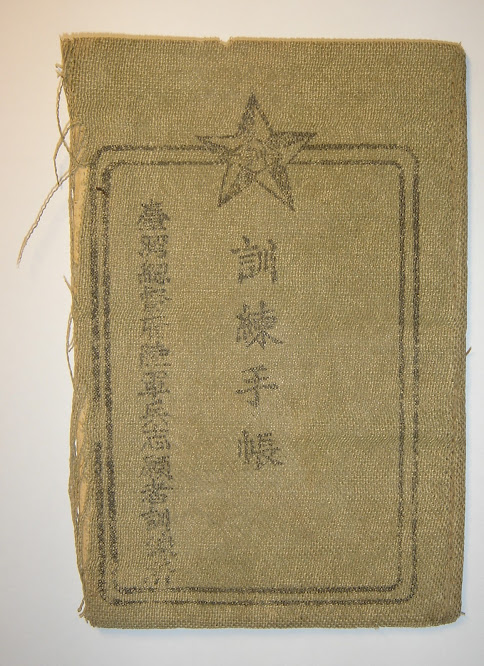 訓練手帳
臺灣總督府陸軍兵志願者訓練所